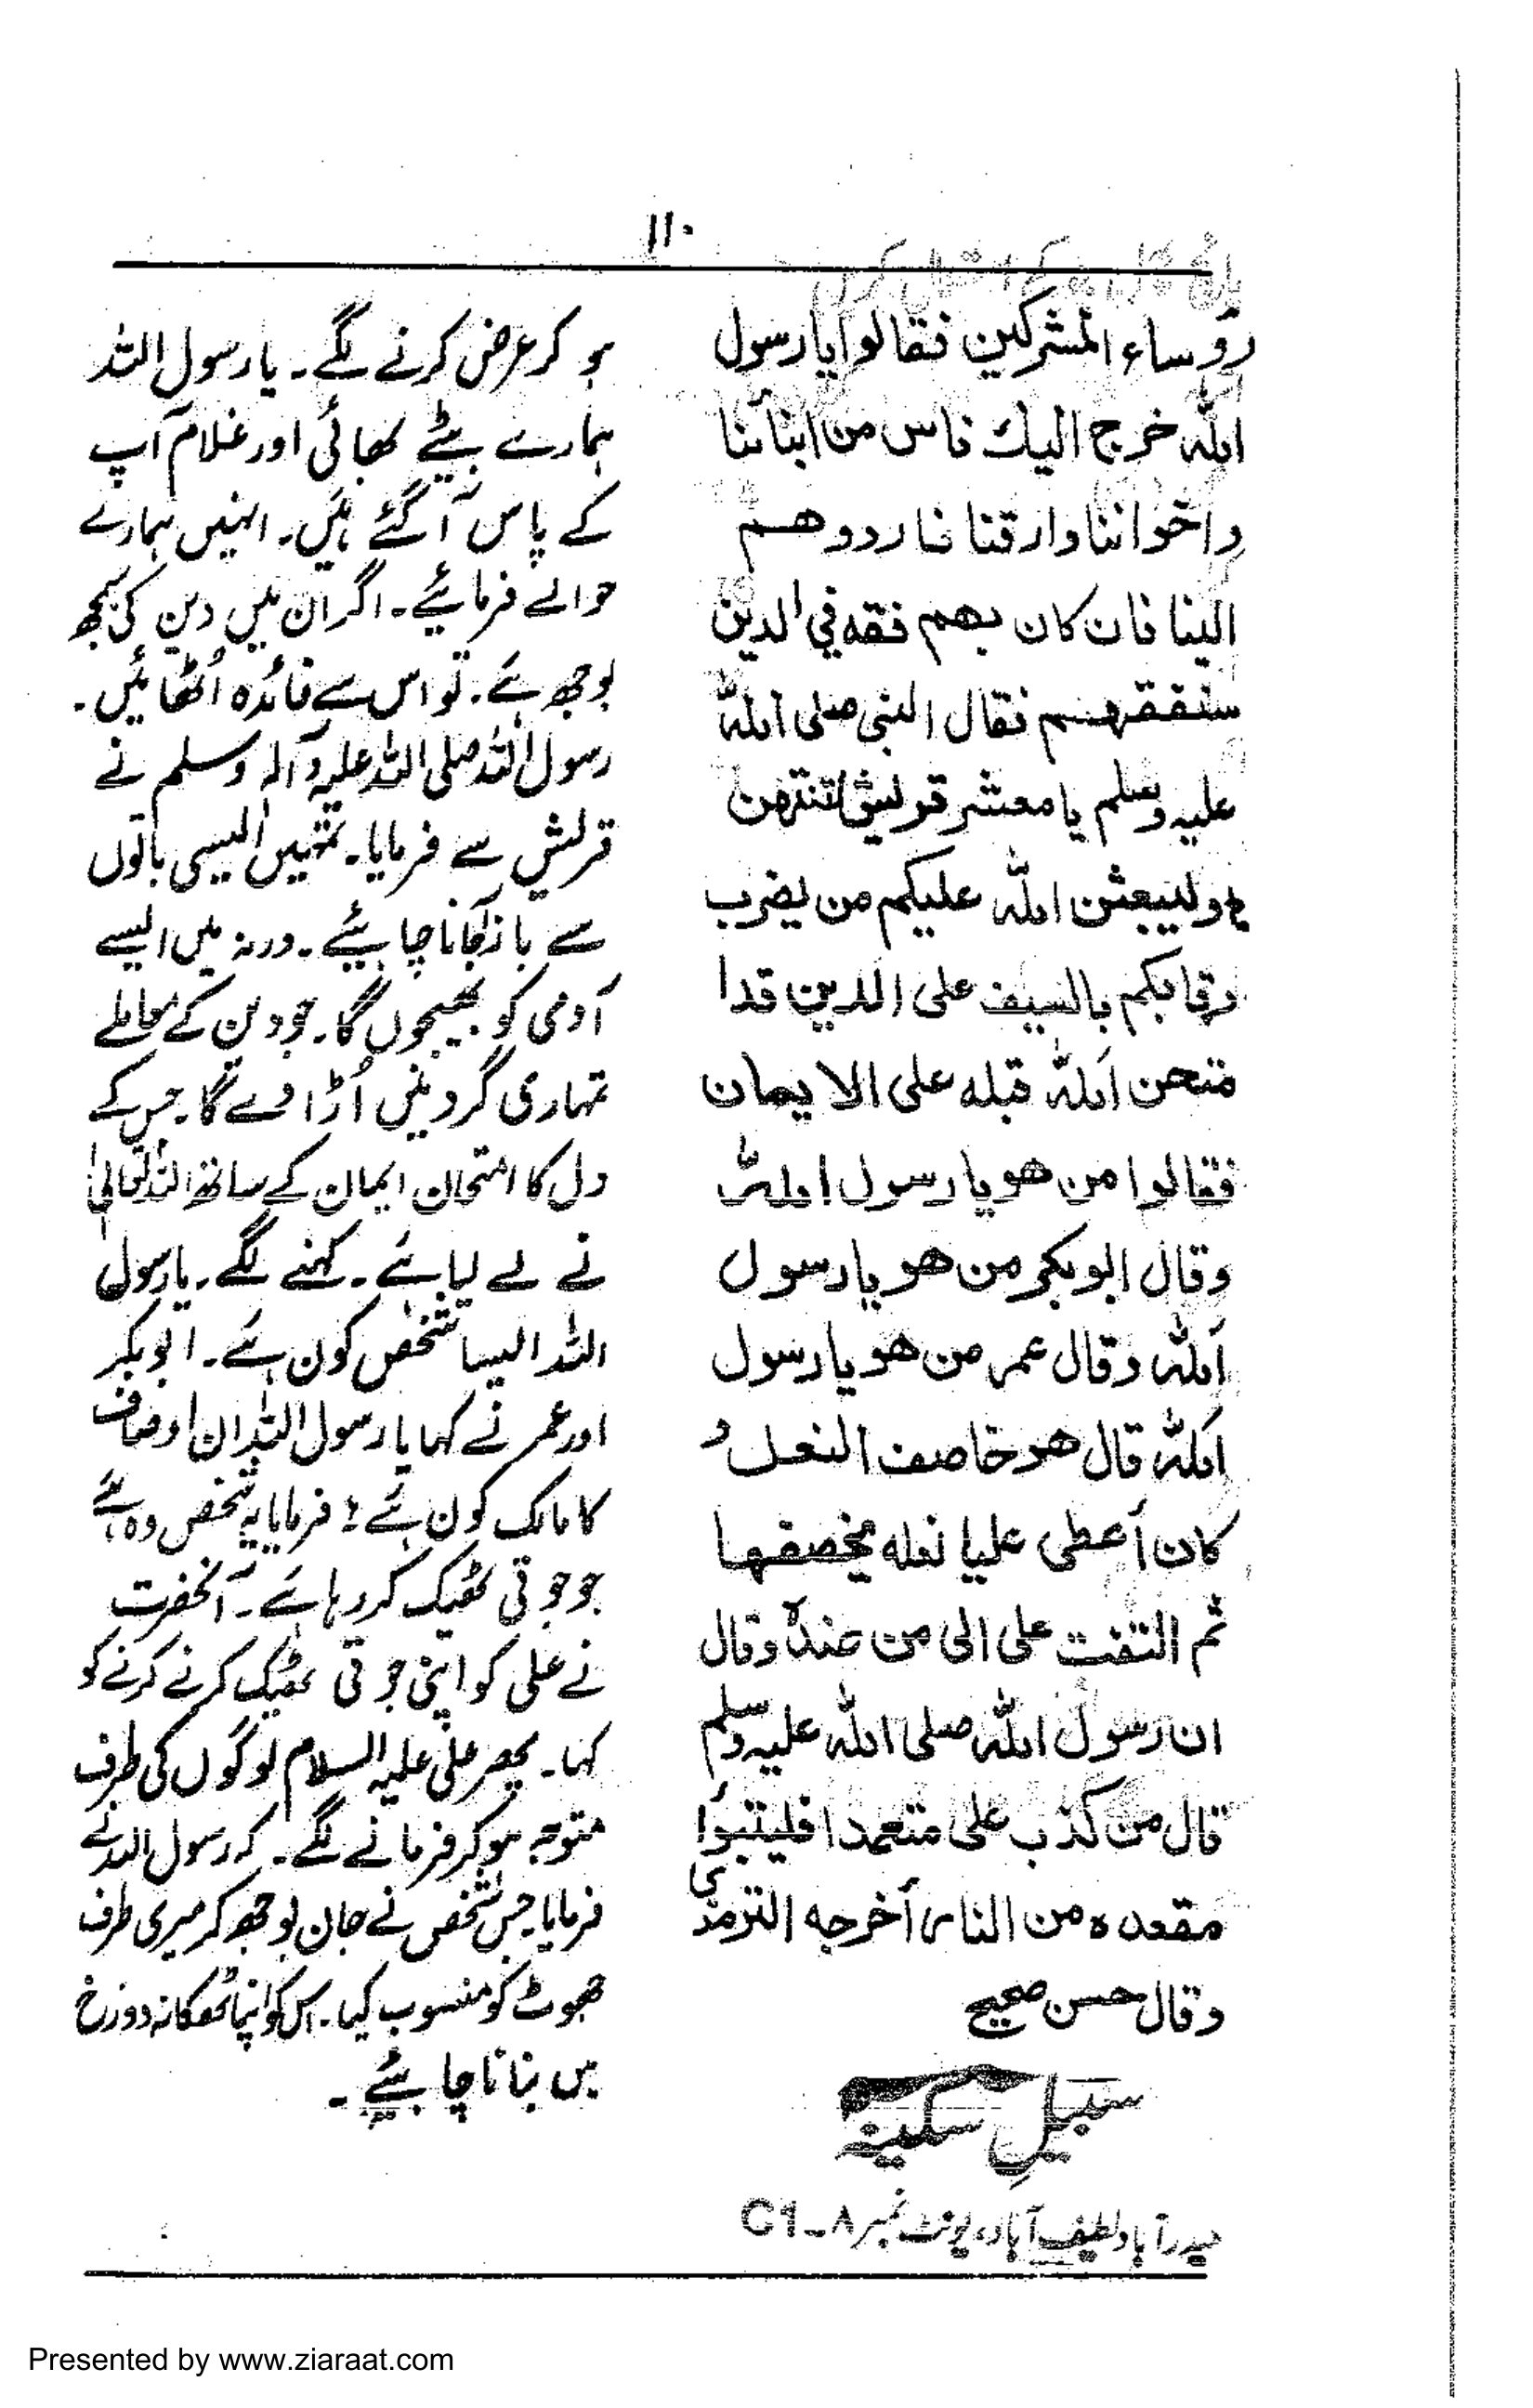 ۱۱۰
رؤساء المشركين فقالوا يا رسول
الله خرج اليك ناس من ابنآئنا
واخواننا وارقنا فارددوهم
الينا فان كان بهم فقه في الدين
سنفقههم فقال النبى صلى الله
عليه وسلم يا معشر قريش لتنتهن
وليبعثن الله عليكم من يضرب
رقابكم بالسيف على الدين قدا
متحن الله قبله على الايمان
فقالوا من هو يا رسول الله
وقال ابو بكر من هو يا رسول
الله وقال عمر من هو يا رسول
الله قال هو خاصف النعل و
كان أعطى عليا نعله يخصفها
ثم التفت على الى من عنده وقال
ان رسول الله صلى الله عليه وسلم
قال من كذب على متعمدا فليتبوأ
مقعده من النار أخرجه الترمذى
وقال حسن صحيح
سبیلِ سکینہ
حیدرآباد لطیف آباد، یونٹ نمبر ۸۔ C1
ہو کر عرض کرنے لگے۔ یا رسول اللہ
ہمارے بیٹے بھائی اور غلام آپ
کے پاس آگئے ہیں۔ انہیں ہمارے
حوالے فرمائیے۔ اگر ان میں دین کی سمجھ
بوجھ ہے۔ تو اس سے فائدہ اُٹھائیں۔
رسول اللہ صلی اللہ علیہ وآلہ وسلم نے
قریش سے فرمایا۔ تمہیں ایسی باتوں
سے باز آجانا چاہیئے۔ ورنہ میں ایسے
آدمی کو بھیجوں گا۔ جو دین کے معاملے
تمہاری گردنیں اُڑا دے گا۔ جس کے
دل کا امتحان ایمان کے ساتھ اللہ تعالیٰ
نے لے لیا ہے۔ کہنے لگے۔ یا رسول
اللہ ایسا شخص کون ہے۔ ابوبکر
اور عمر نے کہا یا رسول اللہ ان اوصاف
کا مالک کون ہے؟ فرمایا یہ شخص وہ ہے
جو جوتی ٹھیک کر رہا ہے۔ آنحضرت
نے علی کو اپنی جوتی ٹھیک کرنے کرنے کو
کہا۔ پھر علی علیہ السلام لوگوں کی طرف
متوجہ ہو کر فرمانے لگے۔ کہ رسول اللہ نے
فرمایا جس شخص نے جان بوجھ کر میری طرف
جھوٹ کو منسوب کیا۔ اس کو اپنا ٹھکانہ دوزخ
میں بنانا چاہیئے۔
Presented by www.ziaraat.com